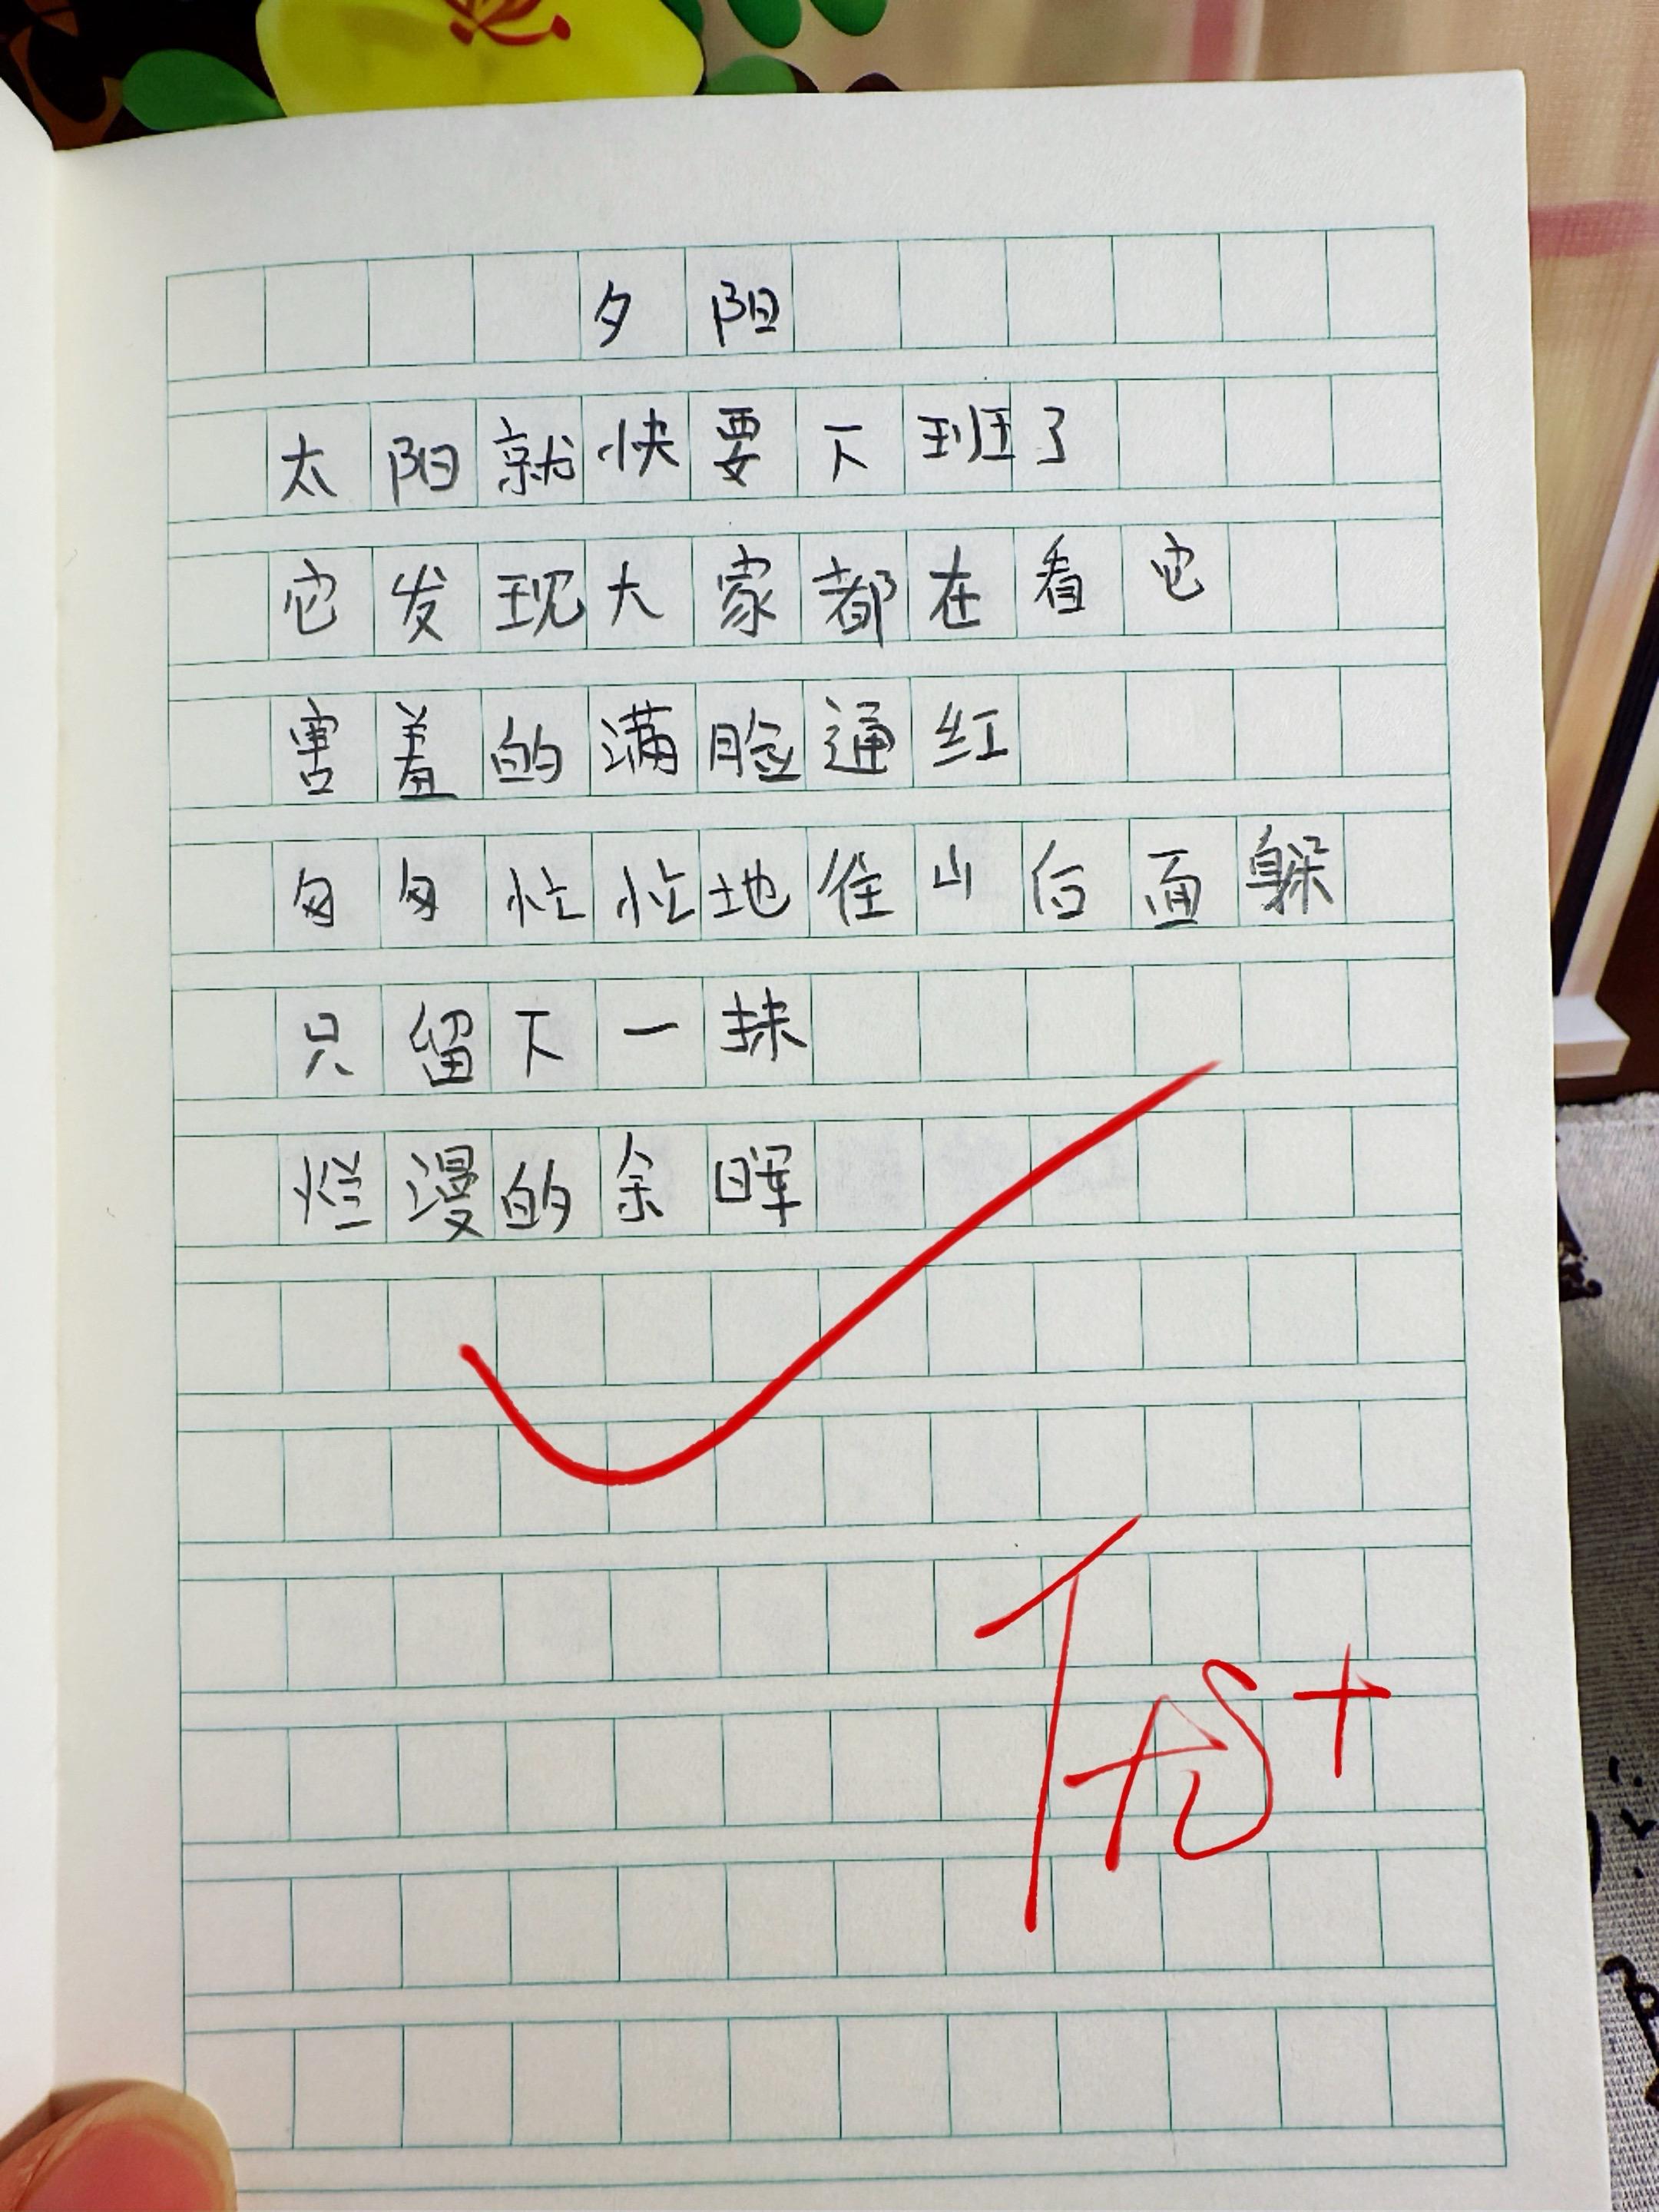 夕阳
太阳就快要下班了
它发现大家都在看它
害羞的满脸通红
匆匆忙忙地往山后面躲
只留下一抹
烂漫的余晖